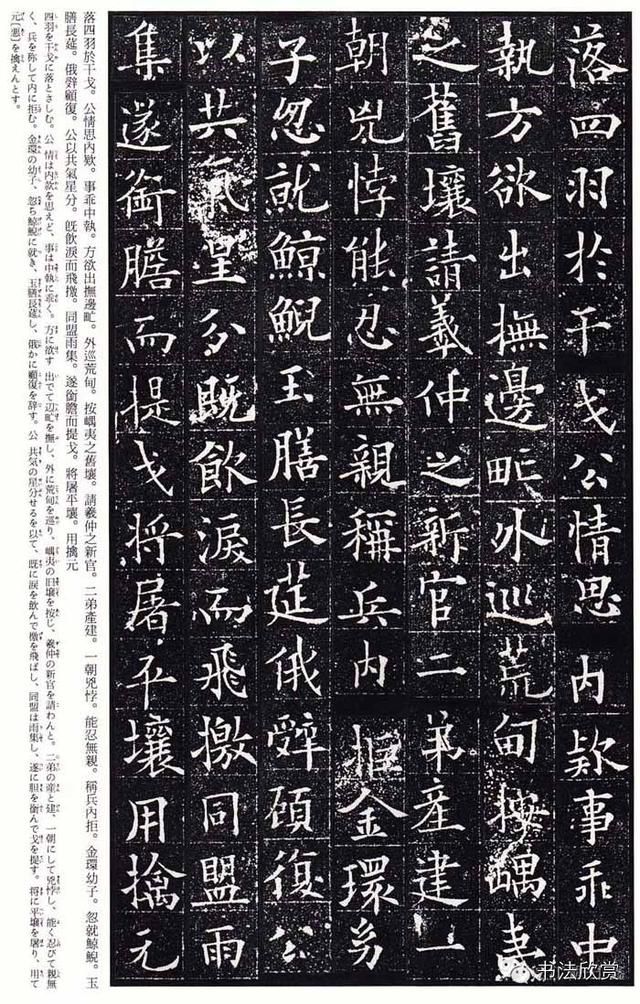 落四羽於干戈公情思内欵事乖中
執方欲出撫邊甿外巡荒甸按嵎夷
之舊壤請羲仲之新官二弟產建一
朝兇悖能忍無親稱兵内拒金環幼
子忽就鯨鯢玉膳長莚俄辤顧復公
以共氣星分既飲淚而飛檄同盟雨
集遂銜膽而提戈將屠平壤用擒元
落四羽於干戈。公情思内欵。事乖中執。方欲出撫邊甿。外巡荒甸。按嵎夷之舊壤。請羲仲之新官。二弟產建。一朝兇悖。能忍無親。稱兵内拒。金環幼子。忽就鯨鯢。玉
膳長莚。俄辤顧復。公以共氣星分。既飮淚而飛檄。同盟雨集。遂銜膽而提戈。將屠平壤。用擒元
四羽を干戈に落とさしむ。公 情は内欵を思えど、事は中執に乖く。方に欲す 出でて辺甿を撫し、外に荒甸を巡り、嵎夷の旧壌を按じ、羲仲の新官を請わんと。二弟の産と建、一朝にして兇悖し、能く忍びて親無
く、兵を称して内に拒む。金環の幼子、忽ち鯨鯢に就き、玉膳長莚し、俄かに顧復を辞す。公 共気の星分せるを以て、既に涙を飲んで檄を飛ばし、同盟は雨集し、遂に胆を銜んで戈を提す。将に平壌を屠り、用て
元〔悪〕を擒えんとす。
书法欣赏